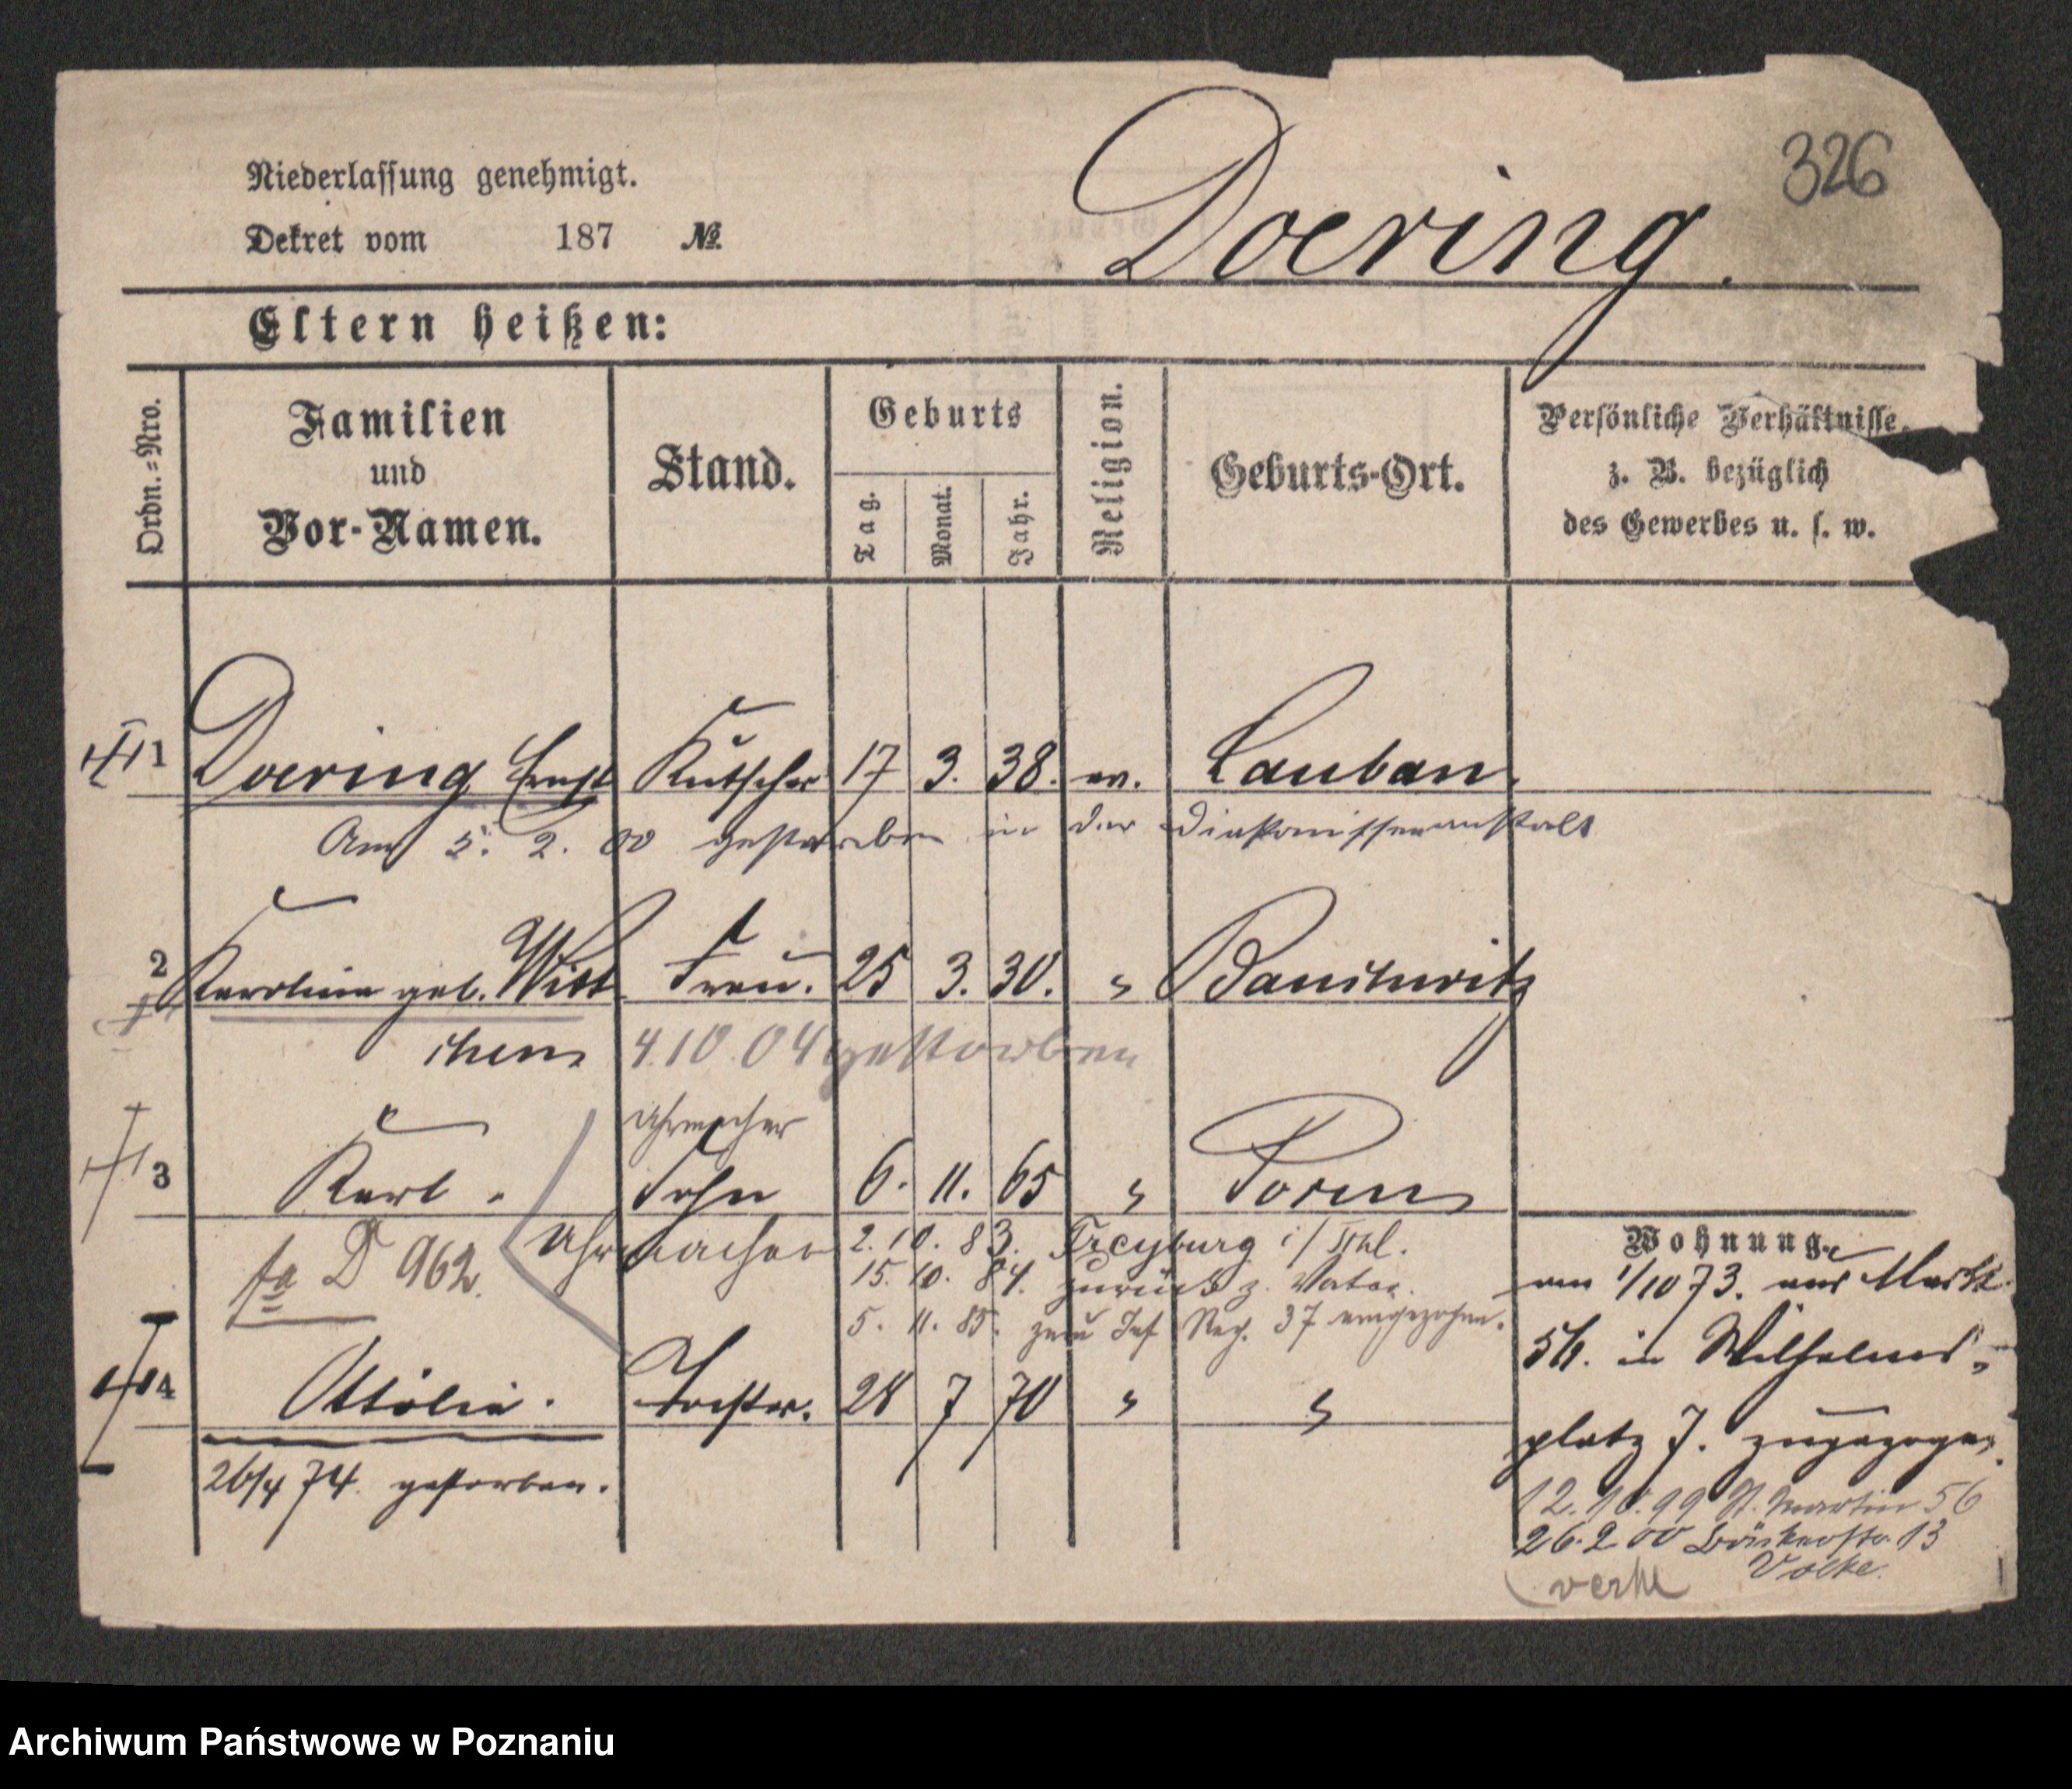 326
Niederlassung genehmigt.
Dekret vom 187 №
Doering.
Eltern heißen:
Ordn.=Nro.
Familien
und
Vor-Namen.
Stand.
Geburts
Tag.
Monat.
Jahr.
Religion.
Geburts-Ort.
Persönliche Verhältnisse,
z. B. bezüglich
des Gewerbes u. s. w.
1 Doering Ernst Kutscher 17 3. 38. ev. Lauban.
Am 5. 2. 00 gestorben in der Diakonissenanstalt
2 Karoline geb. Witt Frau. 25 3. 30. "
chen 4.10.04 gestorben
Uhrmacher
3 Karl. Sohn 6. 11. 65 " Posen
Uhrmacher 2.10.83. Freyburg i/Schl.
fa D 962. 15. 10. 84. zurück z. Vater.
5. 11. 85. zum Inf Reg. 37 eingezogen.
4 Ottilie. Tochter. 28 7 70 " "
26/4 74. gestorben.
Wohnung.
am 1/10 73. aus Markt
56. in Wilhelms-
platz 7. zugezogen.
12.10.99 St. Martin 56
26.2.00 Bäckerstr. 13
Volke.
Archiwum Państwowe w Poznaniu